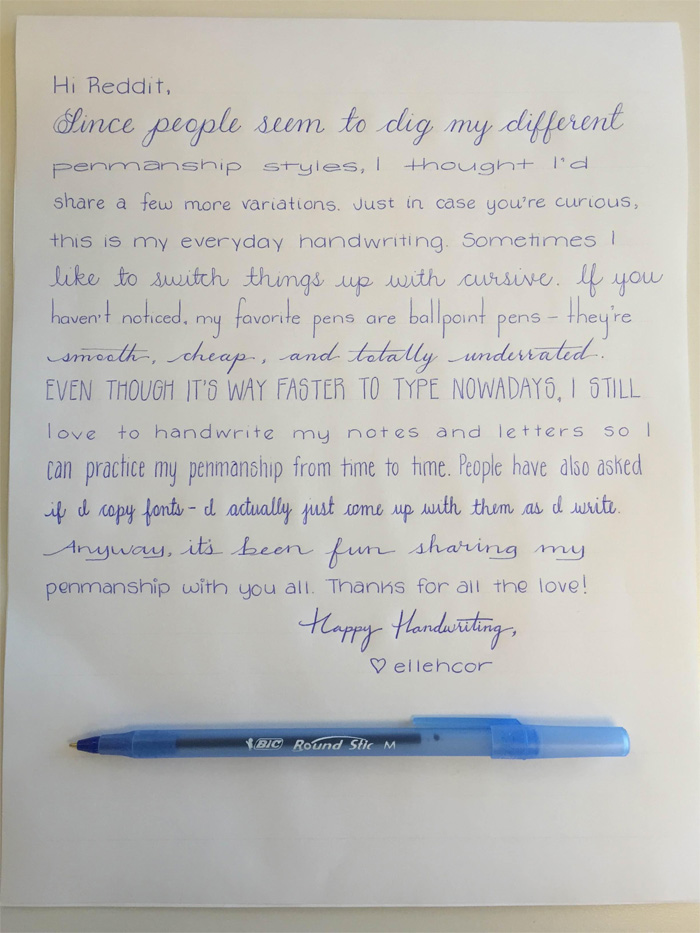 Hi Reddit,
Since people seem to dig my different
penmanship styles, I thought I'd
share a few more variations. Just in case you're curious,
this is my everyday handwriting. Sometimes I
like to switch things up with cursive. If you
haven't noticed, my favorite pens are ballpoint pens – they're
smooth, cheap, and totally underrated.
EVEN THOUGH IT'S WAY FASTER TO TYPE NOWADAYS, I STILL
love to handwrite my notes and letters so I
can practice my penmanship from time to time. People have also asked
if I copy fonts – I actually just come up with them as I write.
Anyway, it's been fun sharing my
penmanship with you all. Thanks for all the love!
Happy Handwriting,
♡ ellehcor
BIC Round Stic M